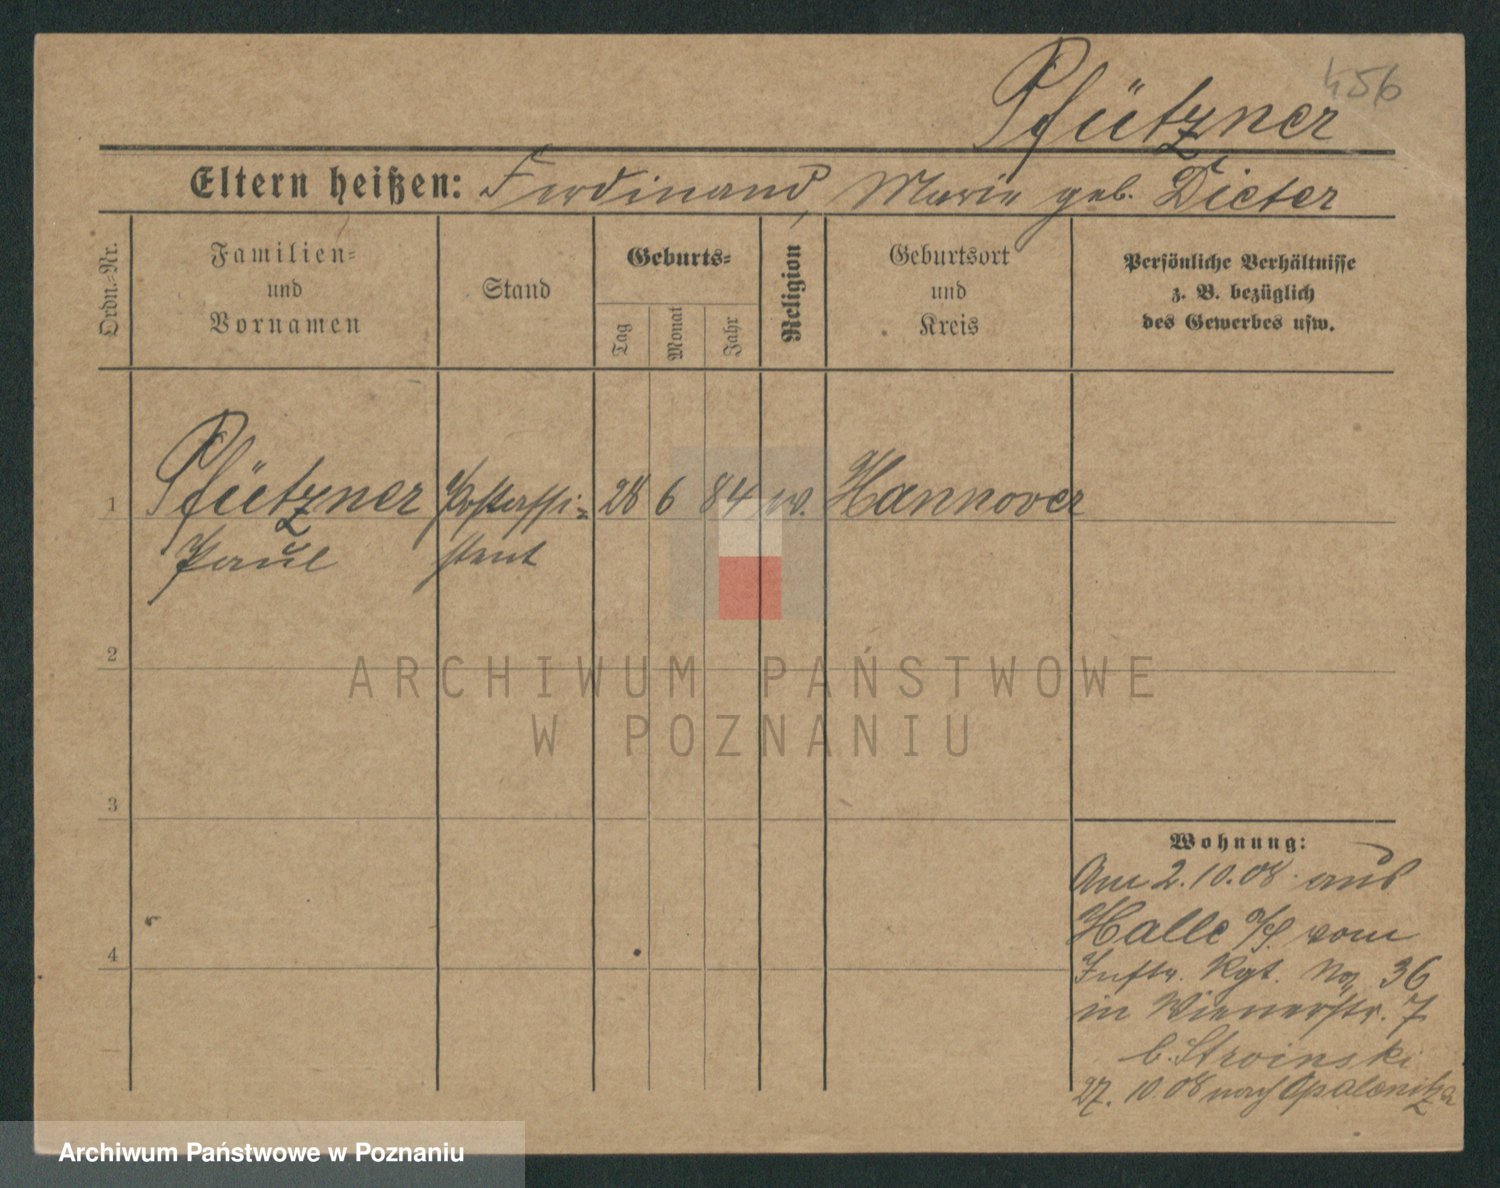 456
Pfützner
Eltern heißen: Ferdinand, Marie geb. Dieter
Ordn.-Nr.
Familien-
und
Vornamen
Stand
Geburts-
Tag
Monat
Jahr
Religion
Geburtsort
und
Kreis
Persönliche Verhältnisse
z. B. bezüglich
des Gewerbes usw.
1 Pfützner Postassi- 28 6 84 w. Hannover
Paul stent
2
3
4
Wohnung:
Am 2.10.08. aus
Halle a/S. vom
Inftr. Rgt. No 36
in Wienerstr. 7
b. Stroinski
27. 10 08 nach Opalenitza
ARCHIWUM PAŃSTWOWE
W POZNANIU
Archiwum Państwowe w Poznaniu